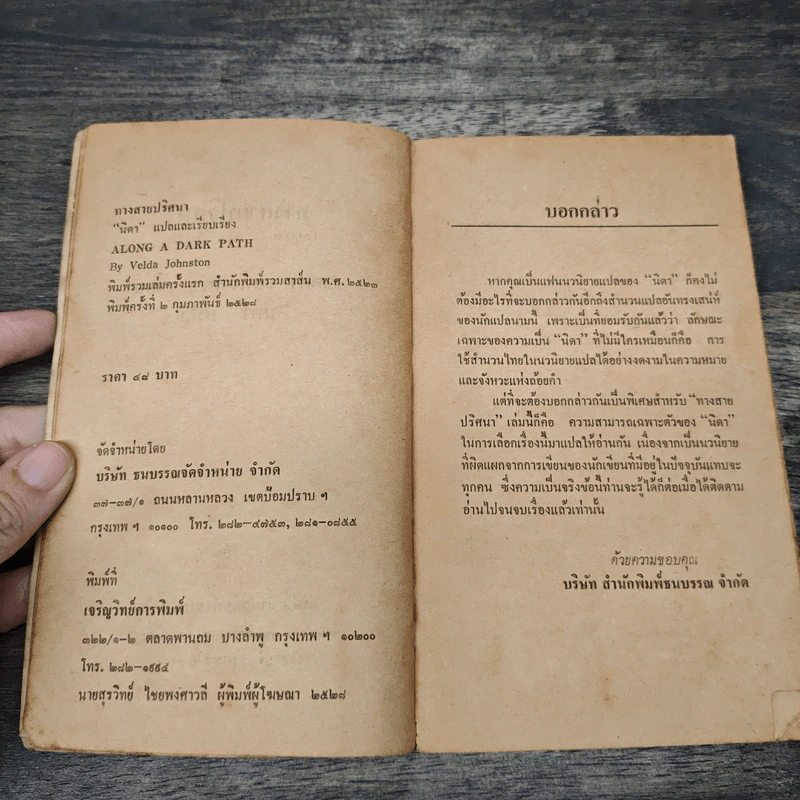 ทางสายปริศนา
“นิดา” แปลและเรียบเรียง
ALONG A DARK PATH
By Velda Johnston
พิมพ์รวมเล่มครั้งแรก สำนักพิมพ์รวมสาส์น พ.ศ. ๒๕๒๓
พิมพ์ครั้งที่ ๒ กุมภาพันธ์ ๒๕๒๘
ราคา ๔๘ บาท
จัดจำหน่ายโดย
บริษัท ธนบรรณจัดจำหน่าย จำกัด
๓๗-๓๗/๑ ถนนหลานหลวง เขตป้อมปราบ ฯ
กรุงเทพ ฯ ๑๐๑๐๐ โทร. ๒๘๒-๔๗๕๓, ๒๘๑-๐๘๕๕
พิมพ์ที่
เจริญวิทย์การพิมพ์
๓๒๒/๑-๒ ตลาดพานถม บางลำพู กรุงเทพ ฯ ๑๐๒๐๐
โทร. ๒๘๒-๑๙๙๔
นายสุรวิทย์ ไชยพงศาวลี ผู้พิมพ์ผู้โฆษณา ๒๕๒๘
บอกกล่าว
หากคุณเป็นแฟนนวนิยายแปลของ “นิดา” ก็คงไม่
ต้องมีอะไรที่จะบอกกล่าวกันอีกถึงสำนวนแปลอันทรงเสน่ห์
ของนักแปลนามนี้ เพราะเป็นที่ยอมรับกันแล้วว่า ลักษณะ
เฉพาะของความเป็น “นิดา” ที่ไม่มีใครเหมือนก็คือ การ
ใช้สำนวนไทยในนวนิยายแปลได้อย่างงดงามในความหมาย
และจังหวะแห่งถ้อยคำ
แต่ที่จะต้องบอกกล่าวกันเป็นพิเศษสำหรับ “ทางสาย
ปริศนา” เล่มนี้ก็คือ ความสามารถเฉพาะตัวของ “นิดา”
ในการเลือกเรื่องนี้มาแปลให้อ่านกัน เนื่องจากเป็นนวนิยาย
ที่ผิดแผกจากการเขียนของนักเขียนที่มีอยู่ในปัจจุบันแทบจะ
ทุกคน ซึ่งความเป็นจริงข้อนี้ท่านจะรู้ได้ก็ต่อเมื่อได้ติดตาม
อ่านไปจนจบเรื่องแล้วเท่านั้น
ด้วยความขอบคุณ
บริษัท สำนักพิมพ์ธนบรรณ จำกัด